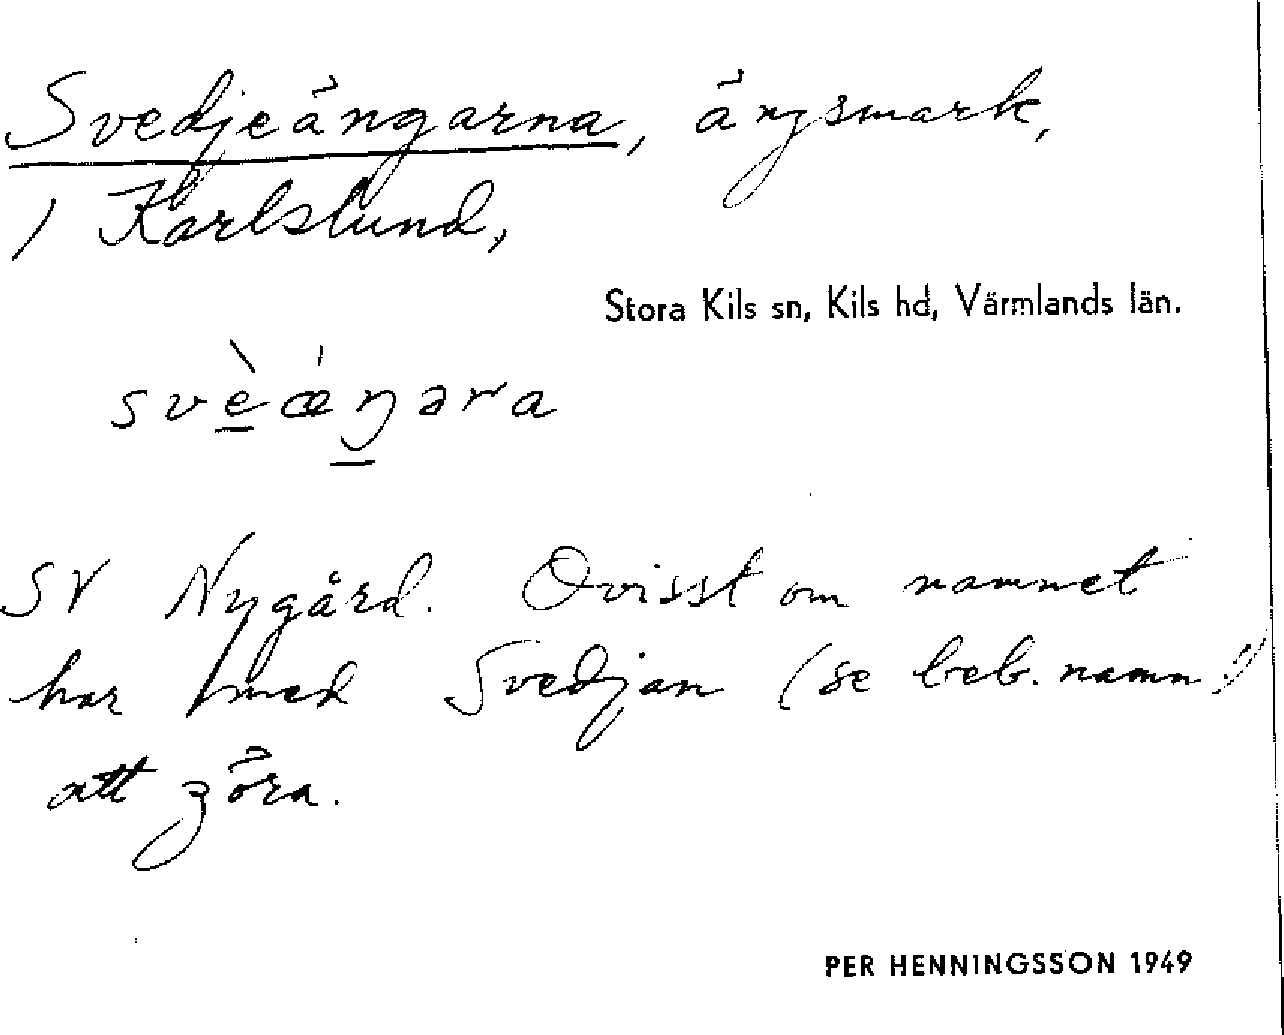 Svedjeängarna, ängsmark,
1 Karlslund,
Stora Kils sn, Kils hd, Värmlands län.
svèǽŋəra
SV Nygård. Ovisst om namnet
har med Svedjan (se beb. namn!)
att göra.
PER HENNINGSSON 1949